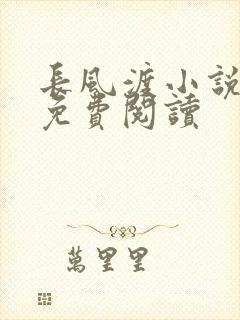 長風渡小說
免費閱讀
萬里里